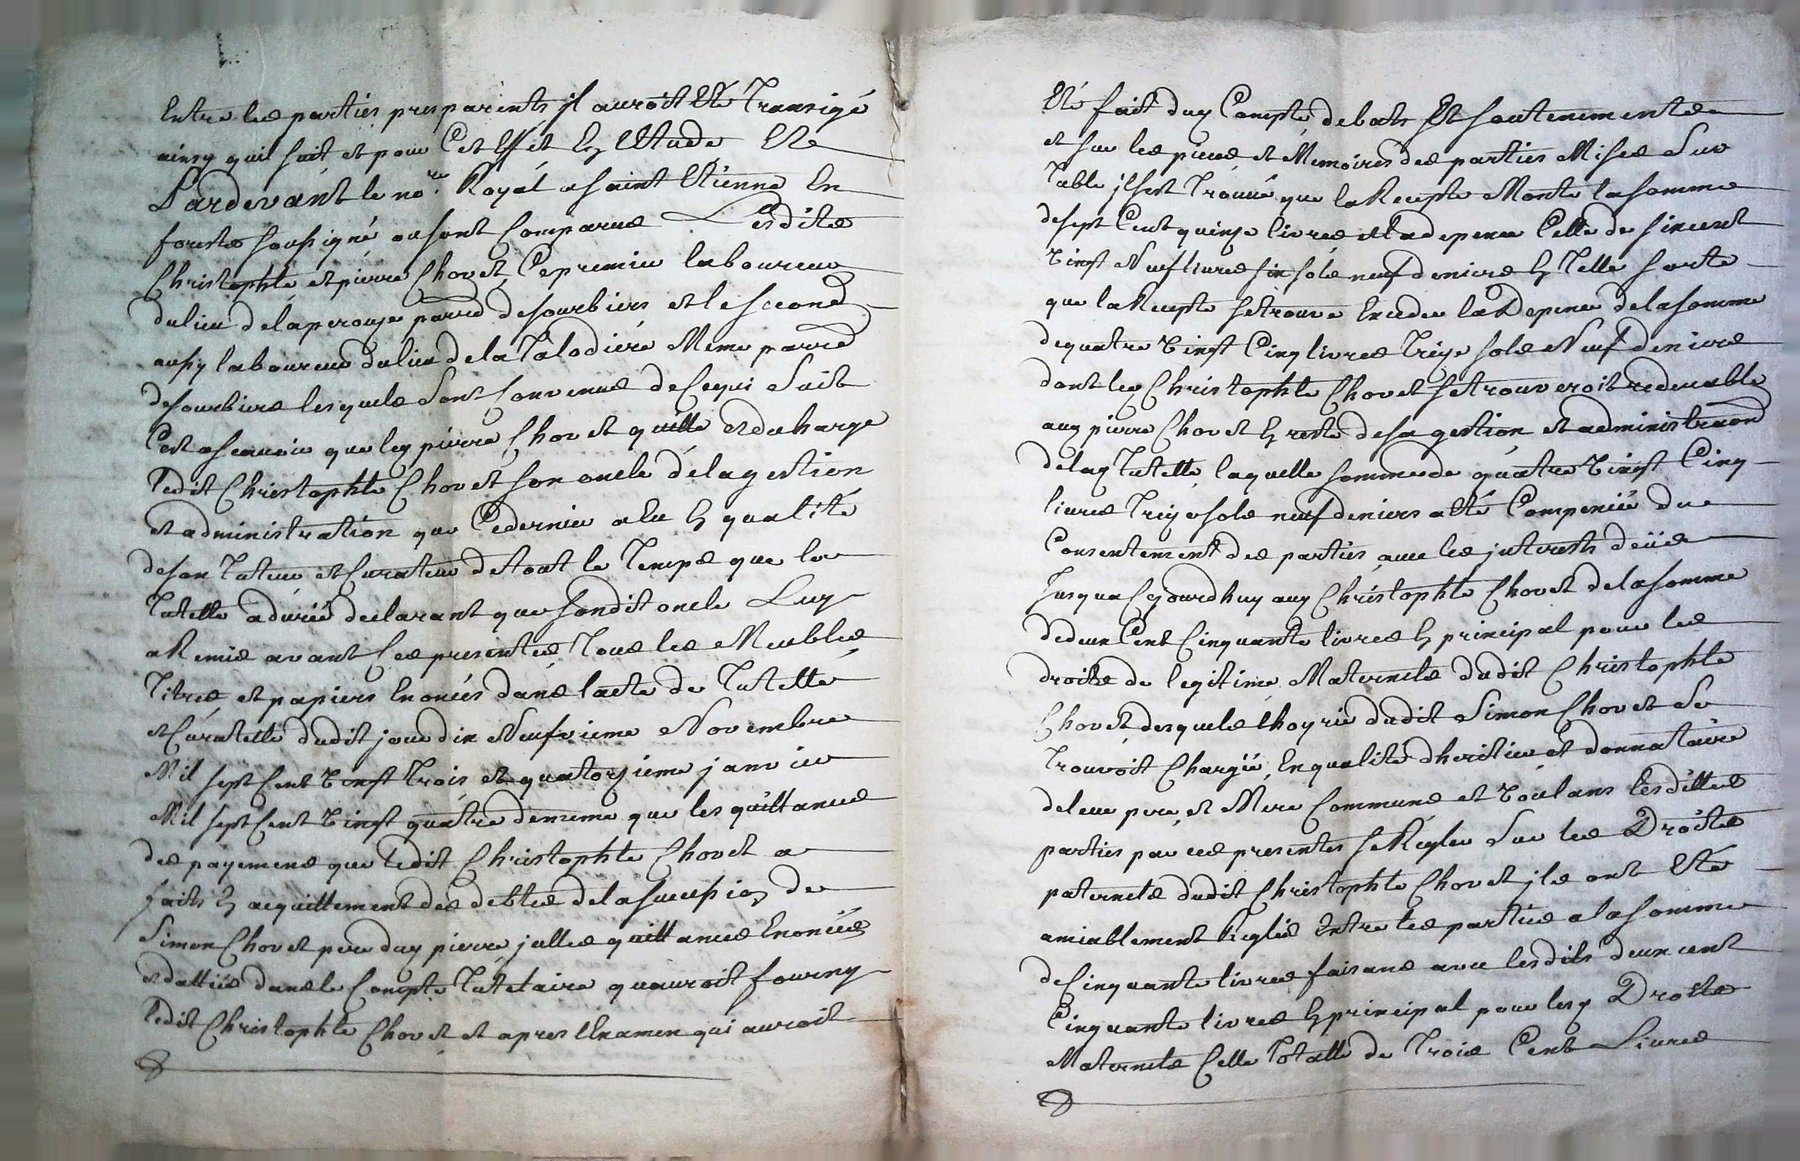 Entre les parties pres parents jl auroit Eté Transigé
ainsy quil suit et pour Cet Effét En lEtude Et
Pardevánt le nore. Royál a saint Etienne En
forests soussigné ou sont Comparus Lesdits
Christophle et pierre Chovet, Cepremier laboureur
dulieu deláperouze parre desourbiers et le second
aussy laboureur dulieu dela Tálodiére Même parre
desourbiers lesquels Sont Convenus deCequi Suit
Cest ascavoir que ley pierre Chovet quitte et decharge
ledit Christophle Chovet son oncle délagestion
et administration que Cedernier aEu En qualité
deson Tuteur et Curateur detout le Temps que la
Tutelle adurée declarant que sondit oncle Luy
aRemis avant Ces presentes Tous les Meubles
Titres et papiers Enoncés dans lacte de Tutelle
et Curatelle dudit jour dix Neufvieme Novembre
Mil sept Cent Vingt Trois et quatorzieme janvier
Mil sept Cent Vingt quátre demême que les quittances
des payemens que ledit Christophle Chovet a
faits En acquittement des debtes delasucession de
Simon Chovet pere duy pierre jcelles quittances Enoncées
et dattées dansle Compte Tutelaire quauroit fourny
ledit Christophle Chovet et apres lExamen qui auroit
Eté fait duy Compte, debats Et soutenements
et sur les pieces et Mémoires des parties Mises Sur
Table jlsest Trouvé que laRecepte Monte lasomme
desept Cent quinze livres et ladepence Celle de sixcent
Vingt Neuf livres six sols neuf deniers En Telle sorte
que laRecepte setrouve Exceder laDepence delasomme
dequatre Vingt Cinq livres Treize sols Neuf deniers
dont ley Christophle Chovet setrouveroit redevable
auy pierre Chovet En reste desa gestion et administraon
delay Tutelle, laquelle sommede quátre Vingt Cinq
livres Treize sols neuf deniers aEté Compensée du
Consentement des parties avec les jnterests deües
Jusqua Cejourdhuy auy Christophle Chovet delasomme
dedeux Cent Cinquante livres En principal pour les
droits de legitime Maternels dudit Christophle
Chovet desquels lhoyrie dudit Simon Chovet Se
Trouvoit Chargée, Enqualité dheritier et donnataire
deleur pere, et Mere Communs et Voulans lesdittes
parties par ces presentes seRegler Sur les Droits
paternels dudit Christophle Chovet jls ont Eté
amiablement Reglés Entre les parties alasomme
deCinquante livres faisans avec lesdits deux cent
Cinquante livres En principal pour lesy Droits
Maternels Celle Totalle de Trois Cent Livres